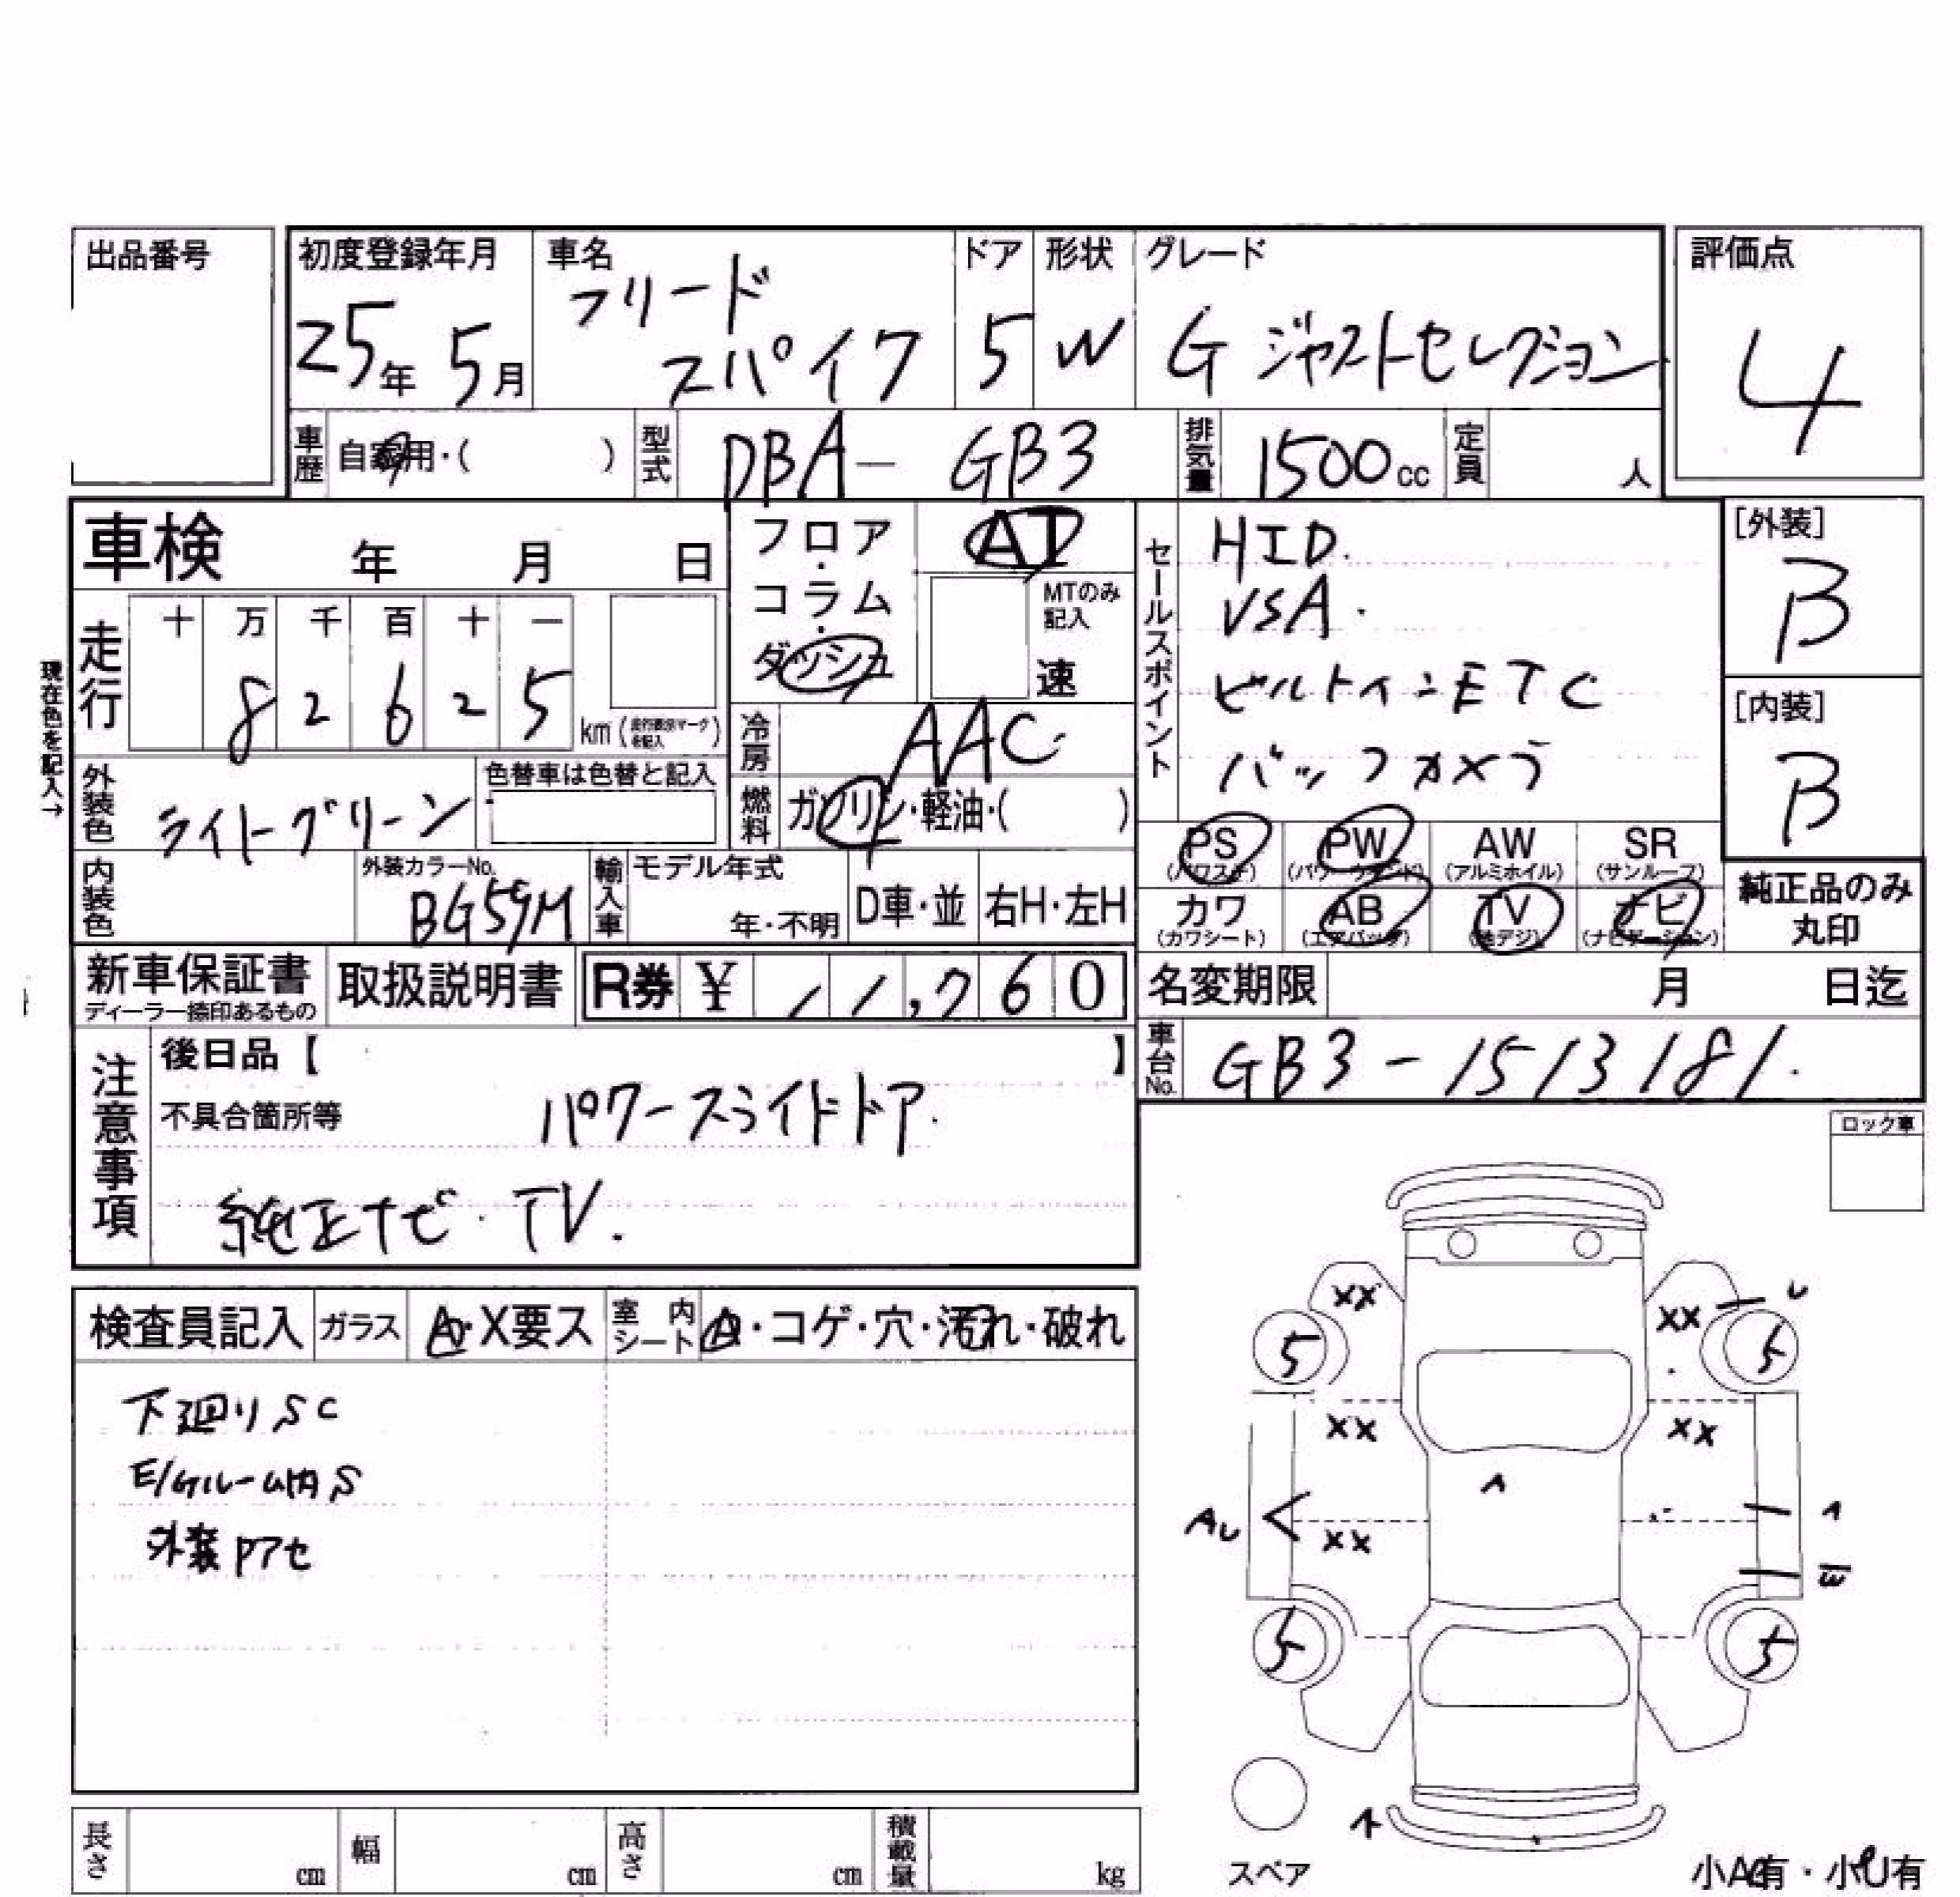 出品番号
初度登録年月 車名 ドア 形状 グレード 評価点
25年 5月 フリード スパイク 5 W G ジャストセレクション 4
車歴 自家用・( ) 型式 DBA- GB3 排気量 1500cc 定員 人
車検 年 月 日
フロア・コラム・ダッシュ AT
MTのみ記入 速
セールスポイント
HID.
VSA.
ビルトインETC
バックカメラ
[外装] B
[内装] B
現在色を記入→
走行 十 万 千 百 十 一
8 2 6 2 5 km (走行表示マークを記入)
冷房 AAC
外装色 ライトグリーン 色替車は色替と記入
燃料 ガソリン・軽油・( )
PS (パワステ) PW (パワーウインド) AW (アルミホイル) SR (サンルーフ)
カワ (カワシート) AB (エアバッグ) TV (地デジ) ナビ (ナビゲーション)
純正品のみ丸印
内装色 外装カラーNo. BG59M 輸入車 モデル年式 年・不明 D車・並 右H・左H
新車保証書 ディーラー捺印あるもの 取扱説明書 R券 ¥ 11,760 名変期限 月 日迄
車台No. GB3-1513181.
注意事項
後日品【 】
不具合箇所等 パワースライドドア.
純正ナビ・TV.
ロック車
検査員記入 ガラス A・X要ス 室内シート A・コゲ・穴・汚れ・破れ
下廻りSC
E/Gルーム内S
外装Pアセ
XX XX U
5 5
XX XX
A
AU XX A
W
5 5
A
スペア
小A有・小U有
長さ cm 幅 cm 高さ cm 積載量 kg